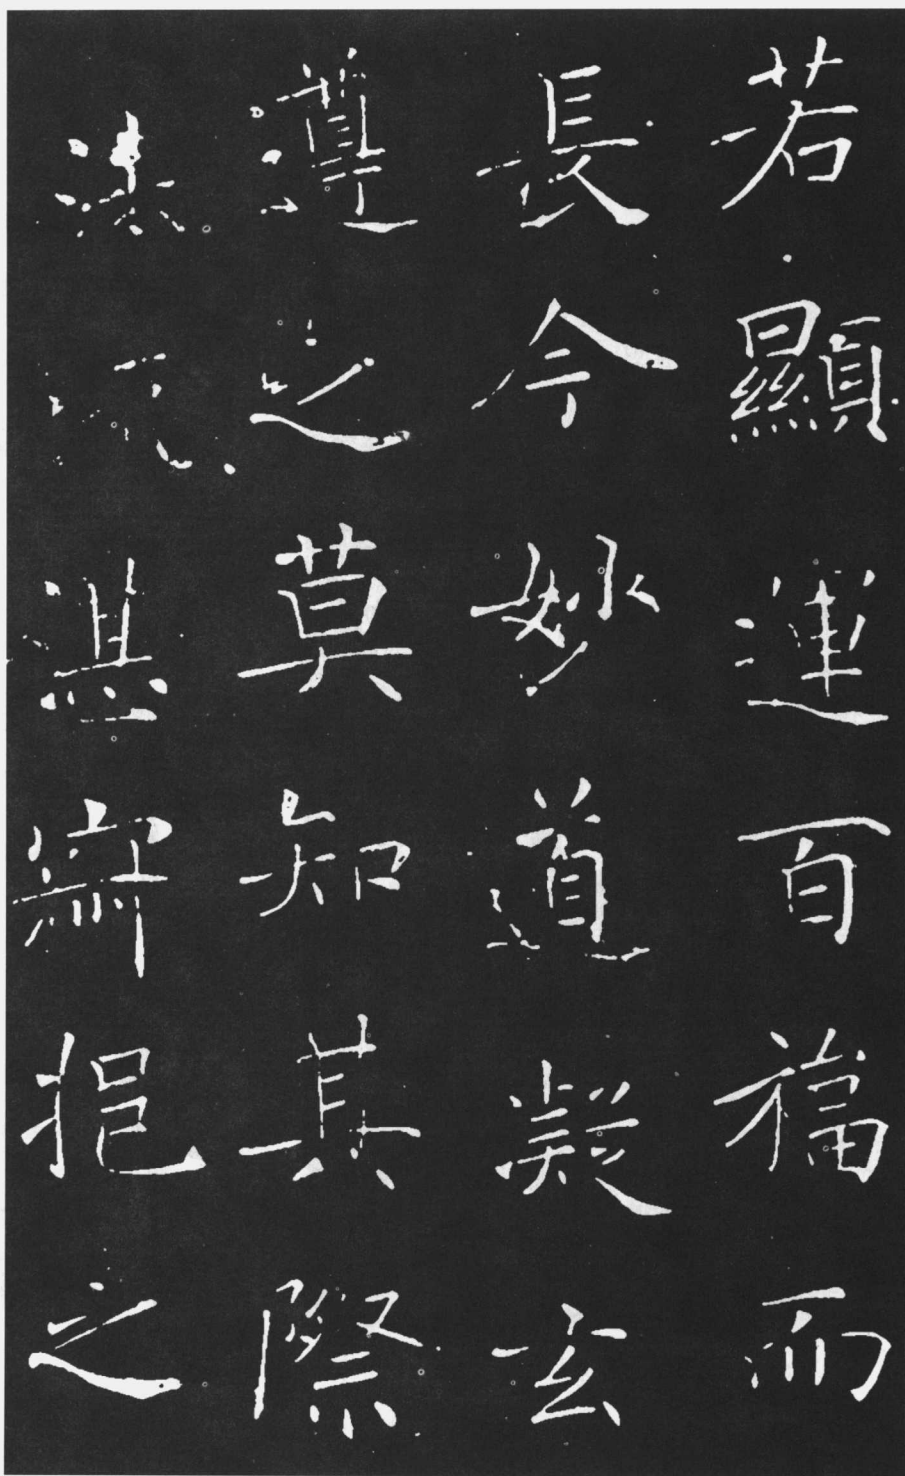 若顯運百福而
長今妙道凝玄
遵之莫知其際
湛寂挹之